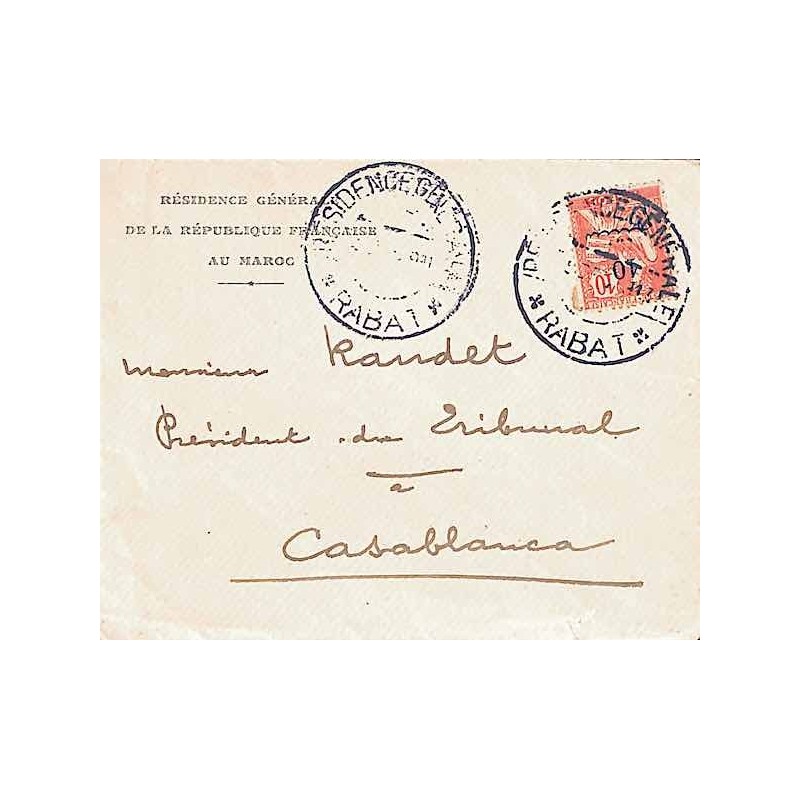 RÉSIDENCE GÉNÉRA
DE LA RÉPUBLIQUE FRANÇAISE
AU MAROC
RÉSIDENCE GÉNÉRALE
* RABAT *
RÉSIDENCE GÉNÉRALE
* RABAT *
10
Monsieur Kaudet
Président du Tribunal
a
Casablanca